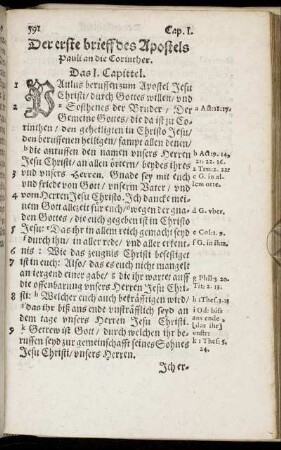 591
Cap. I.
Der erste brieff des Apostels
Pauli an die Corinther.
Das I. Capittel.
1 PAulus beruffen zum Apostel Jesu
Christi/ durch Gottes willen/ vnd
2 Sosthenes der Bruder/ Der
Gemeine Gottes/ die da ist zu Co-
rinthen/ den geheiligten in Christo Jesu/
den beruffenen heiligen/ sampt allen denen/
die anruffen den namen vnsers Herren
Jesu Christi/ an allen örtern/ beydes ihres
3 vnd vnsers Herren. Gnade sey mit euch
vnd friede von Gott/ vnserm Vater/ vnd
4 vom Herren Jesu Christo. Ich dancke mei-
nem Gott allezeit für euch/ wegen der gna-
den Gottes/ die euch gegeben ist in Christo
5 Jesu: Das ihr in allem reich gemacht seyd
durch ihn/ in aller rede/ vnd aller erkent-
6 nis: Wie das zeugnis Christi befestiget
7 ist in euch: Also/ das es euch nicht mangelt
an irgend einer gabe/ die ihr wartet auff
die offenbarung vnsers Herren Jesu Chri-
8 sti: Welcher euch auch bekräfftigen wird/
das ihr biß ans ende vnsträfflich seyd an
dem tage vnsers Herren Jesu Christi.
9 Getrew ist Gott/ durch welchen ihr be-
ruffen seyd zur gemeinschafft seines Sohnes
Jesu Christi/ vnsers Herren.
Ich er-
a Act:18.17.
b Act:9.14,
21: 22.16.
2 Tim:2.22:
c G. in al-
lem orte.
d G. vber.
e Col:1.9.
f G. in ihm.
g Phil:3.20
Tit:2.13.
h 1 Thes:3.13
i Od: biß
ans ende
[das ihr]
k 1 Thes:5.
24.